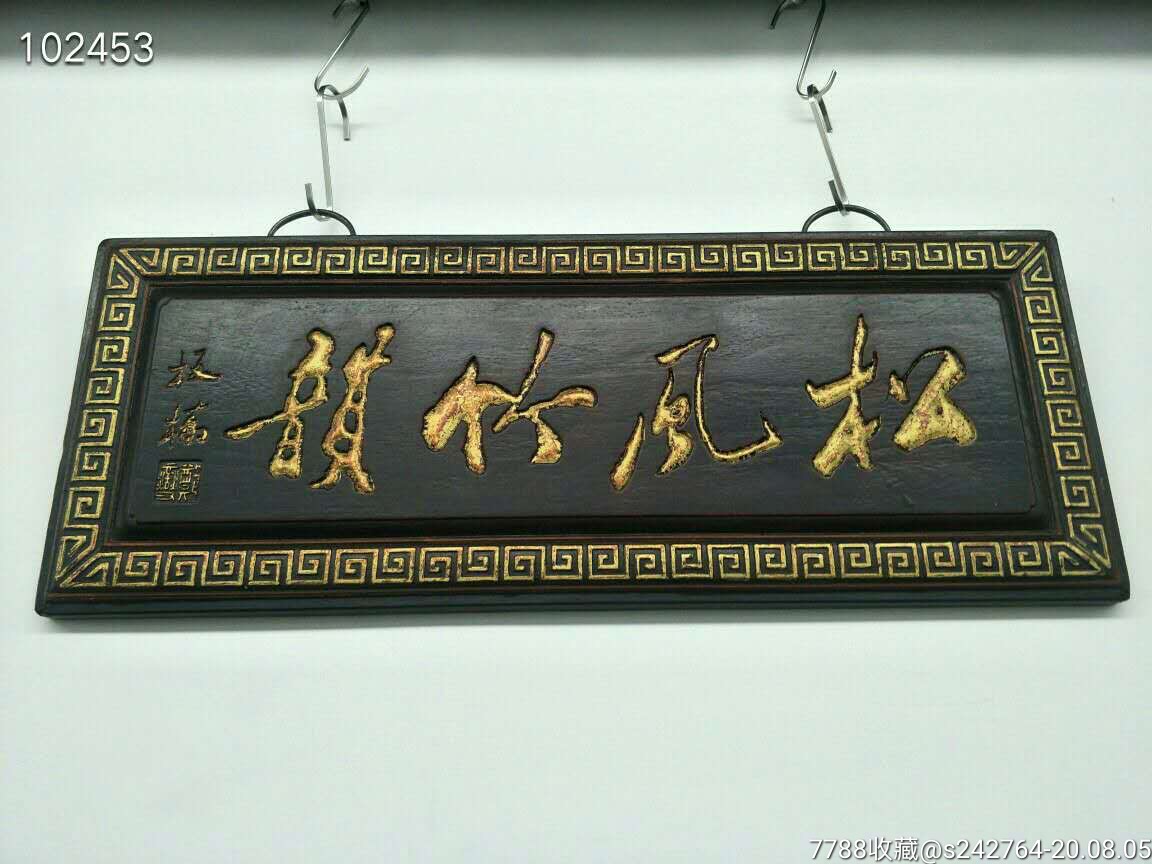 102453
松風竹韻
板橋
7788收藏@s242764-20.08.05